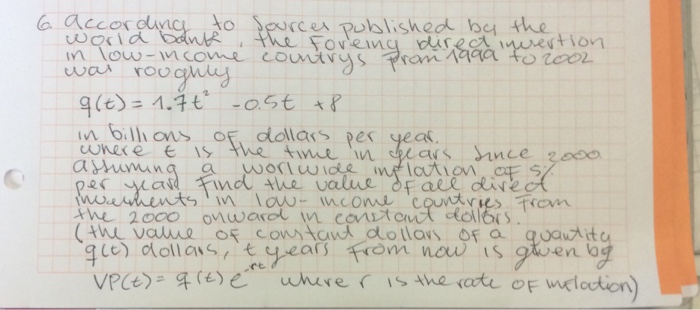 6. according to Sources published by the
world bank, the Foreing direct invertion
in low-income countrys from 1999 to 2002
was roughly
q(t) = 1.7t² - 0.5t + 8
in billions of dollars per year.
where t is the time in years since 2000
assuming a worlwide inflation of 5%
per year Find the value of all direct
invesments in low-income countries from
the 2000 onward in constant dollars.
(the value of constant dollars of a quantity
q(t) dollars, t years from now is given by
VP(t) = q(t) e^-rt where r is the rate of inflation)